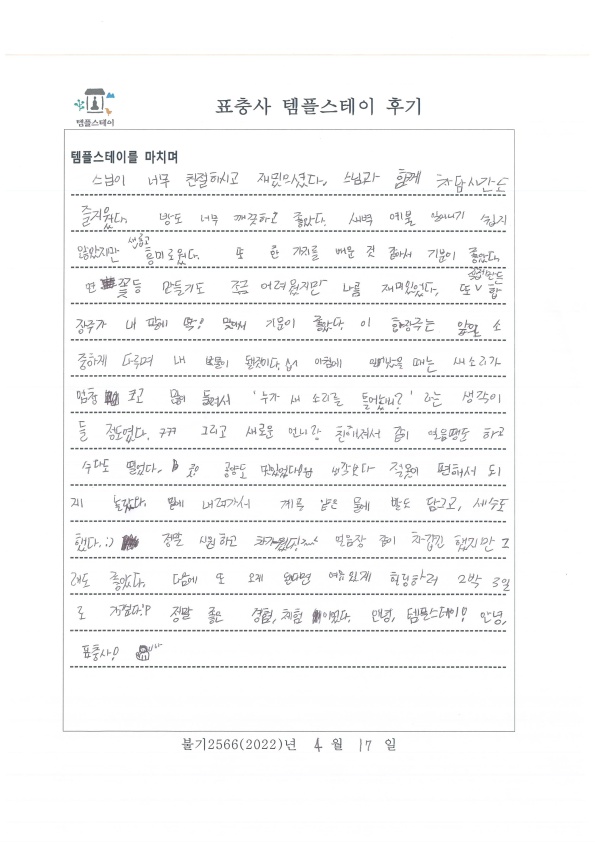 템플스테이
표충사 템플스테이 후기
템플스테이를 마치며
스님이 너무 친절하시고 재밌으셨다. 스님과 함께 차담시간도
즐거웠다. 방도 너무 깨끗하고 좋았다. 새벽 예불 일어나기 쉽지
않았지만 새롭고 흥미로웠다. 또 한 가지를 배운 것 같아서 기분이 좋았다.
연꽃등 만들기도 조금 어려웠지만 나름 재미있었다. 또 직접 만든 합
장주가 내 팔에 딱! 맞아서 기분이 좋았다 이 합장주는 앞으로 소
중하게 다루며 내 보물이 될것이다. 아침에 일어났을 때는 새소리가
엄청 크고 많이 들려서 '누가 새 소리를 틀어놨나?' 라는 생각이
들 정도였다. ㅋㅋ 그리고 새로운 언니랑 친해져서 같이 탁구도 하고
수다도 떨었다. 공양도 맛있었다 생각보다 절옷이 편해서 되
게 놀랐다. 밑에 내려가서 계곡 같은 물에 발도 담그고, 세수도
했다. :) 정말 시원하고 차가웠다. 얼음장 같이 차갑긴 했지만 그
래도 좋았다. 다음에 또 오게 된다면 여유있게 힐링하러 2박 3일
로 정말 좋은 경험, 체험 이었다. 안녕, 템플스테이! 안녕,
표충사!
불기2566(2022)년 4 월 17 일